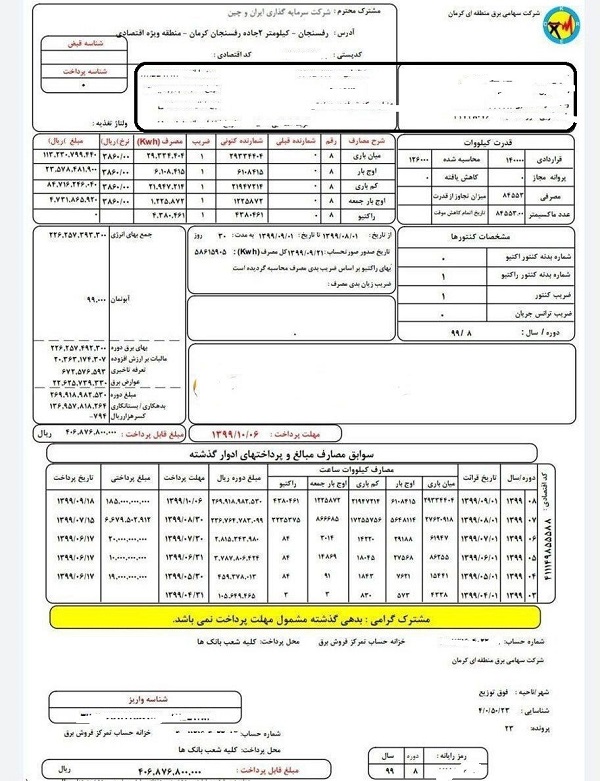 شرکت سهامی برق منطقه ای کرمان
مشترک محترم : شرکت سرمایه گذاری ایران و چین
آدرس : رفسنجان - کیلومتر ۲جاده رفسنجان کرمان - منطقه ویژه اقتصادی
کدپستی : کد اقتصادی :
شناسه قبض
شناسه پرداخت
۰
ولتاژ تغذیه :
قدرت کیلووات
قراردادی ۱۴۰۰۰۰ محاسبه شده ۱۲۶۰۰۰
پروانه مجاز ۰ کاهش یافته ۰
مصرفی ۸۴۵۵۳ میزان تجاوز از قدرت
عدد ماکسیمتر ۸۴۵۵۳.۰۰ تاریخ اتمام کاهش موقت
شرح مصارف رقم شمارنده قبلی شمارنده کنونی ضریب مصرف (Kwh) نرخ(ریال) مبلغ (ریال)
میان باری ۸ ۰ ۲۹۳۳۴۴۰۴ ۱ ۲۹,۳۳۴,۴۰۴ ۳۸۶۰/۰۰ ۱۱۳,۲۳۰,۷۹۹,۴۴۰
اوج بار ۸ ۰ ۶۱۰۸۴۱۵ ۱ ۶,۱۰۸,۴۱۵ ۳۸۶۰/۰۰ ۲۳,۵۷۸,۴۸۱,۹۰۰
کم باری ۸ ۰ ۲۱۹۴۷۲۱۴ ۱ ۲۱,۹۴۷,۲۱۴ ۳۸۶۰/۰۰ ۸۴,۷۱۶,۲۴۶,۰۴۰
اوج بار جمعه ۸ ۰ ۱۲۲۵۸۷۲ ۱ ۱,۲۲۵,۸۷۲ ۳۸۶۰/۰۰ ۴,۷۳۱,۸۶۵,۹۲۰
راکتیو ۸ ۰ ۴۳۸۰۴۶۱ ۱ ۴,۳۸۰,۴۶۱ ۰
مشخصات کنتورها
شماره بدنه کنتور ۰
شماره بدنه کنتور راکتیو ۱
ضریب کنتور ۱
ضریب ترانس جریان ۰
دوره / سال : ۹۹/۸
از تاریخ : ۱۳۹۹/۰۸/۰۱ تا تاریخ : ۱۳۹۹/۰۹/۰۱ به مدت : ۳۰ روز
تاریخ صدور صورتحساب : ۱۳۹۹/۰۹/۲۱ کل مصرف (Kwh) : ۵۸۶۱۵۹۰۵
بهای راکتیو بر اساس ضریب بدی مصرف محاسبه گردیده است
ضریب زیان بدی مصرف :
جمع بهای انرژی ۲۲۶,۲۵۷,۳۹۳,۳۰۰
آبونمان ۹۹,۰۰۰
بهای برق دوره ۲۲۶,۲۵۷,۴۹۲,۳۰۰
مالیات بر ارزش افزوده ۲۰,۳۶۳,۱۷۴,۳۰۷
تعرفه تاخیری ۶۷۲,۵۷۶,۵۹۳
عوارض برق ۲۲,۶۲۵,۷۳۹,۳۳۰
مبلغ دوره ۲۶۹,۹۱۸,۹۸۲,۵۳۰
بدهکاری / بستانکاری ۱۳۶,۹۵۷,۸۱۸,۲۶۴
کسر هزار ریال -۷۹۴
مهلت پرداخت : ۱۳۹۹/۱۰/۰۶
مبلغ قابل پرداخت : ۴۰۶,۸۷۶,۸۰۰,۰۰۰ ریال
سوابق مصارف مبالغ و پرداختهای ادوار گذشته
مصارف کیلووات ساعت
دوره/سال تاریخ قرائت میان باری اوج بار کم باری اوج بار جمعه راکتیو مبلغ دوره ریال مهلت پرداخت مبلغ پرداختی تاریخ پرداخت
۰۸ ۱۳۹۹ ۱۳۹۹/۰۹/۰۱ ۲۹۳۳۴۴۰۴ ۶۱۰۸۴۱۵ ۲۱۹۴۷۲۱۴ ۱۲۲۵۸۷۲ ۴۳۸۰۴۶۱ ۲۶۹,۹۱۸,۹۸۲,۵۳۰ ۱۳۹۹/۱۰/۰۶ ۱۸۵,۰۰۰,۰۰۰,۰۰۰ ۱۳۹۹/۰۹/۱۸
۰۷ ۱۳۹۹ ۱۳۹۹/۰۸/۰۱ ۲۷۶۲۰۹۱۸ ۵۶۴۸۱۱۴ ۱۷۲۵۵۷۵۶ ۸۶۶۶۸۵ ۲۲۲۵۳۷۵ ۲۳۶,۷۶۴,۷۸۳,۰۹۹ ۱۳۹۹/۰۸/۳۰ ۶,۶۷۹,۵۰۲,۹۱۲ ۱۳۹۹/۰۷/۱۵
۰۶ ۱۳۹۹ ۱۳۹۹/۰۷/۰۱ ۶۱۹۴۷ ۲۹۱۸۸ ۱۴۲۲۰ ۳۰۱۴ ۸۴ ۲,۸۱۵,۳۴۳,۹۸۰ ۲۰,۰۰۰,۰۰۰,۰۰۰ ۱۳۹۹/۰۶/۱۷
۰۵ ۱۳۹۹ ۱۳۹۹/۰۶/۰۱ ۸۶۲۵۵ ۲۷۵۶۸ ۱۸۰۴۵ ۱۴۸۶۹ ۸۴ ۳,۷۸۷,۸۰۶,۴۲۴ ۱۳۹۹/۰۶/۳۱ ۱۰,۰۰۰,۰۰۰,۰۰۰ ۱۳۹۹/۰۶/۱۷
۰۴ ۱۳۹۹ ۱۳۹۹/۰۵/۰۱ ۱۵۴۴۱ ۷۶۲۱ ۱۸۴۳ ۹۱ ۸۴ ۴۵۹,۳۷۸,۰۱۳ ۱۳۹۹/۰۵/۳۰ ۱۹,۰۰۰,۰۰۰,۰۰۰ ۱۳۹۹/۰۶/۱۷
۰۳ ۱۳۹۹ ۱۳۹۹/۰۴/۰۱ ۴۳۳۸ ۵۷۳ ۸۳۰ ۳ ۳ ۱۰۵,۶۴۹,۴۶۵ ۱۳۹۹/۰۴/۳۱
کد اقتصادی : ۴۱۱۱۴۹۸۵۵۵۸۸
مشترک گرامی : بدهی گذشته مشمول مهلت پرداخت نمی باشد.
شماره حساب : خزانه حساب تمرکز فروش برق محل پرداخت : کلیه شعب بانک ها
شرکت سهامی برق منطقه ای کرمان
شهر/ناحیه : فوق توزیع
شناسایی : ۴/۰/۵۰/۲۳
پرونده : ۲۳
شناسه واریز
شماره حساب : خزانه حساب تمرکز فروش برق
محل پرداخت : کلیه شعب بانک ها
مبلغ قابل پرداخت : ۴۰۶,۸۷۶,۸۰۰,۰۰۰ ریال
رمز رایانه : دوره سال
۸ ۹۹